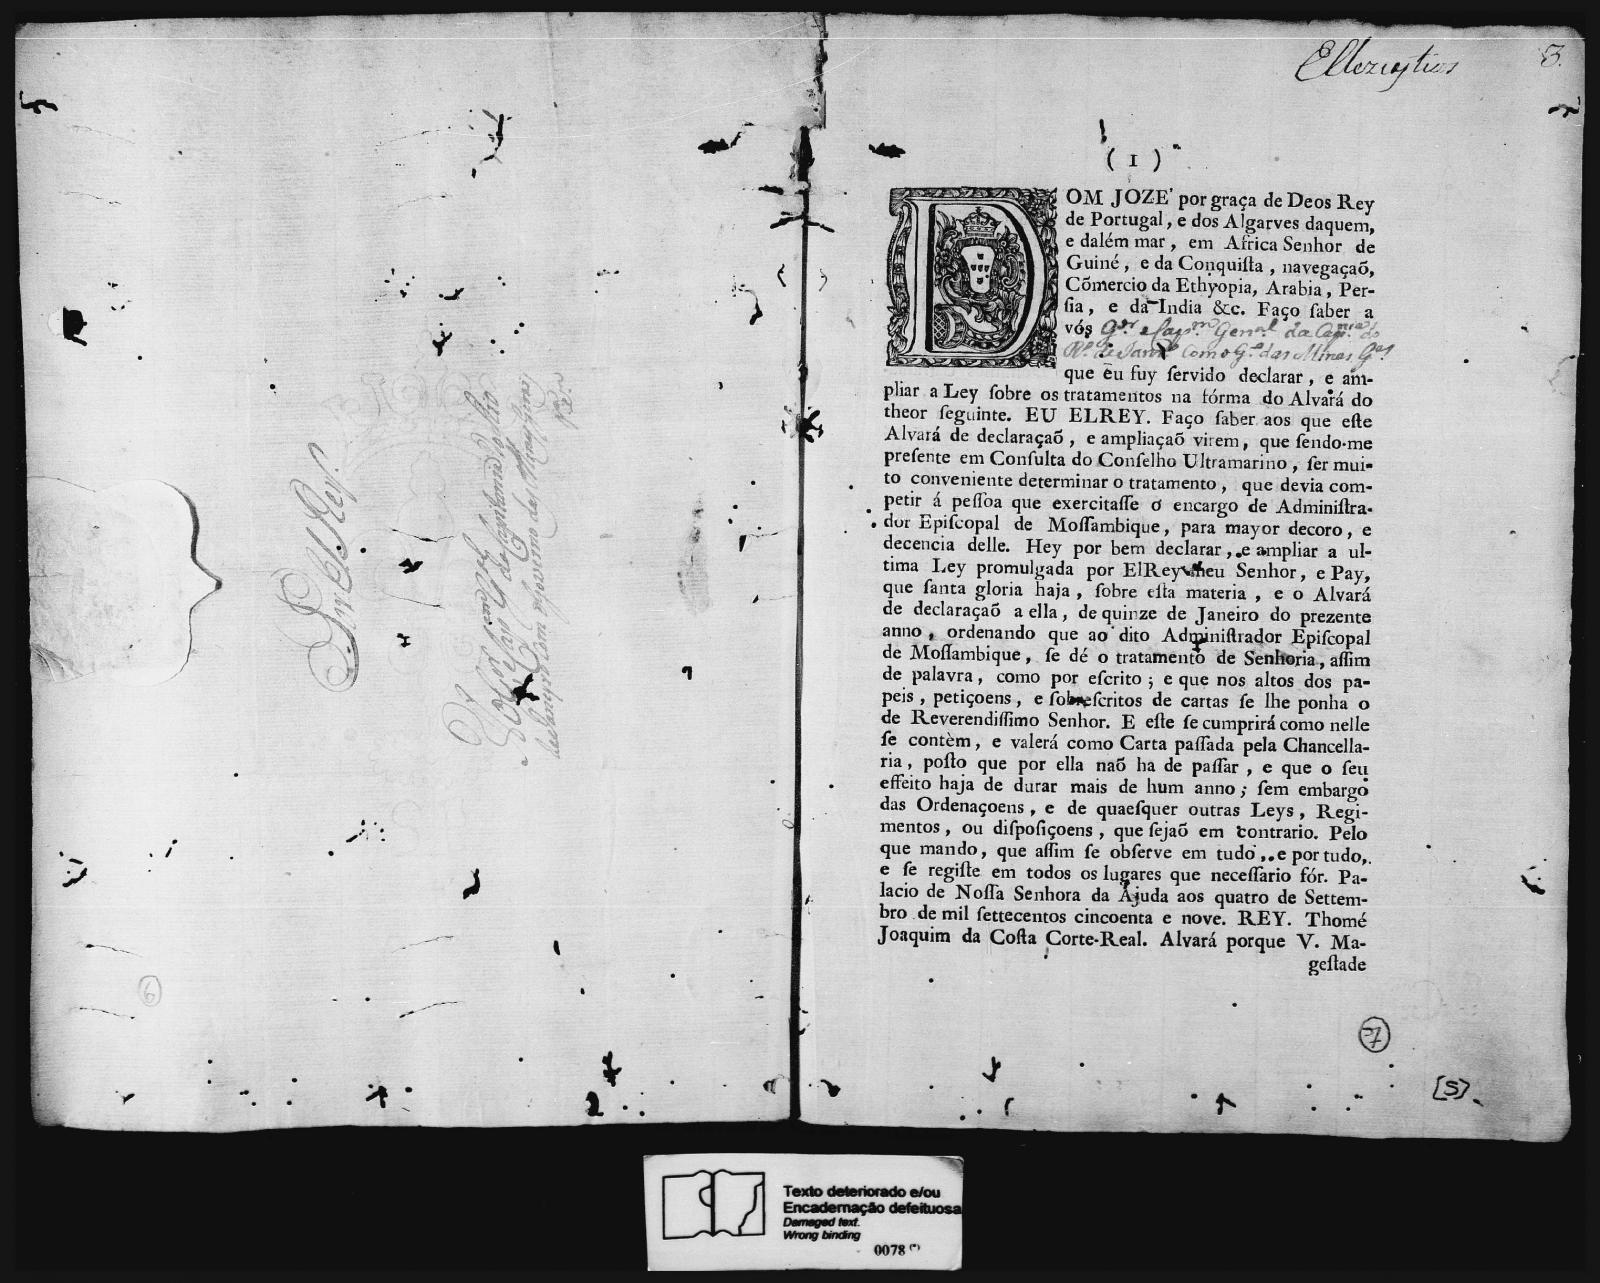 Por ElRey.
Ecleziasticos 3.
( 1 )
DOM JOZE' por graça de Deos Rey
de Portugal, e dos Algarves daquem,
e dalém mar, em Africa Senhor de
Guiné, e da Conquiſta, navegaçaõ,
Cõmercio da Ethyopia, Arabia, Per-
ſia, e da India &c. Faço ſaber a
vós Gor. e Capm. Genal. da Capnia. do
Rº. de Janro. com o Gº. das Minas Gês
que eu fuy ſervido declarar, e am-
pliar a Ley ſobre os tratamentos na fórma do Alvará do
theor ſeguinte. EU ELREY. Faço ſaber aos que eſte
Alvará de declaraçaõ, e ampliaçaõ virem, que ſendo-me
preſente em Conſulta do Conſelho Ultramarino, ſer mui-
to conveniente determinar o tratamento, que devia com-
petir á peſſoa que exercitaſſe o encargo de Adminiſtra-
dor Epiſcopal de Moſſambique, para mayor decoro, e
decencia delle. Hey por bem declarar, e ampliar a ul-
tima Ley promulgada por ElRey meu Senhor, e Pay,
que ſanta gloria haja, ſobre eſta materia, e o Alvará
de declaraçaõ a ella, de quinze de Janeiro do prezente
anno, ordenando que ao dito Adminiſtrador Epiſcopal
de Moſſambique, ſe dé o tratamento de Senhoria, aſſim
de palavra, como por eſcrito; e que nos altos dos pa-
peis, petiçoens, e ſobreſcritos de cartas ſe lhe ponha o
de Reverendiſſimo Senhor. E eſte ſe cumprirá como nelle
ſe contèm, e valerá como Carta paſſada pela Chancella-
ria, poſto que por ella naõ ha de paſſar, e que o ſeu
effeito haja de durar mais de hum anno; ſem embargo
das Ordenaçoens, e de quaeſquer outras Leys, Regi-
mentos, ou diſpoſiçoens, que ſejaõ em contrario. Pelo
que mando, que aſſim ſe obſerve em tudo, e por tudo,
e ſe regiſte em todos os lugares que neceſſario fór. Pa-
lacio de Noſſa Senhora da Ajuda aos quatro de Settem-
bro de mil ſettecentos cincoenta e nove. REY. Thomé
Joaquim da Coſta Corte-Real. Alvará porque V. Ma-
geſtade
[5]
Texto deteriorado e/ou
Encadernação defeituosa
Damaged text.
Wrong binding
0078 (*)